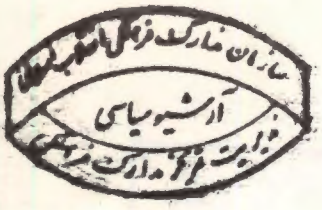 سازمان مدارک فرهنگی انقلاب اسلامی
آرشیو سیاسی
مدیریت مرکز مدارک فرهنگی